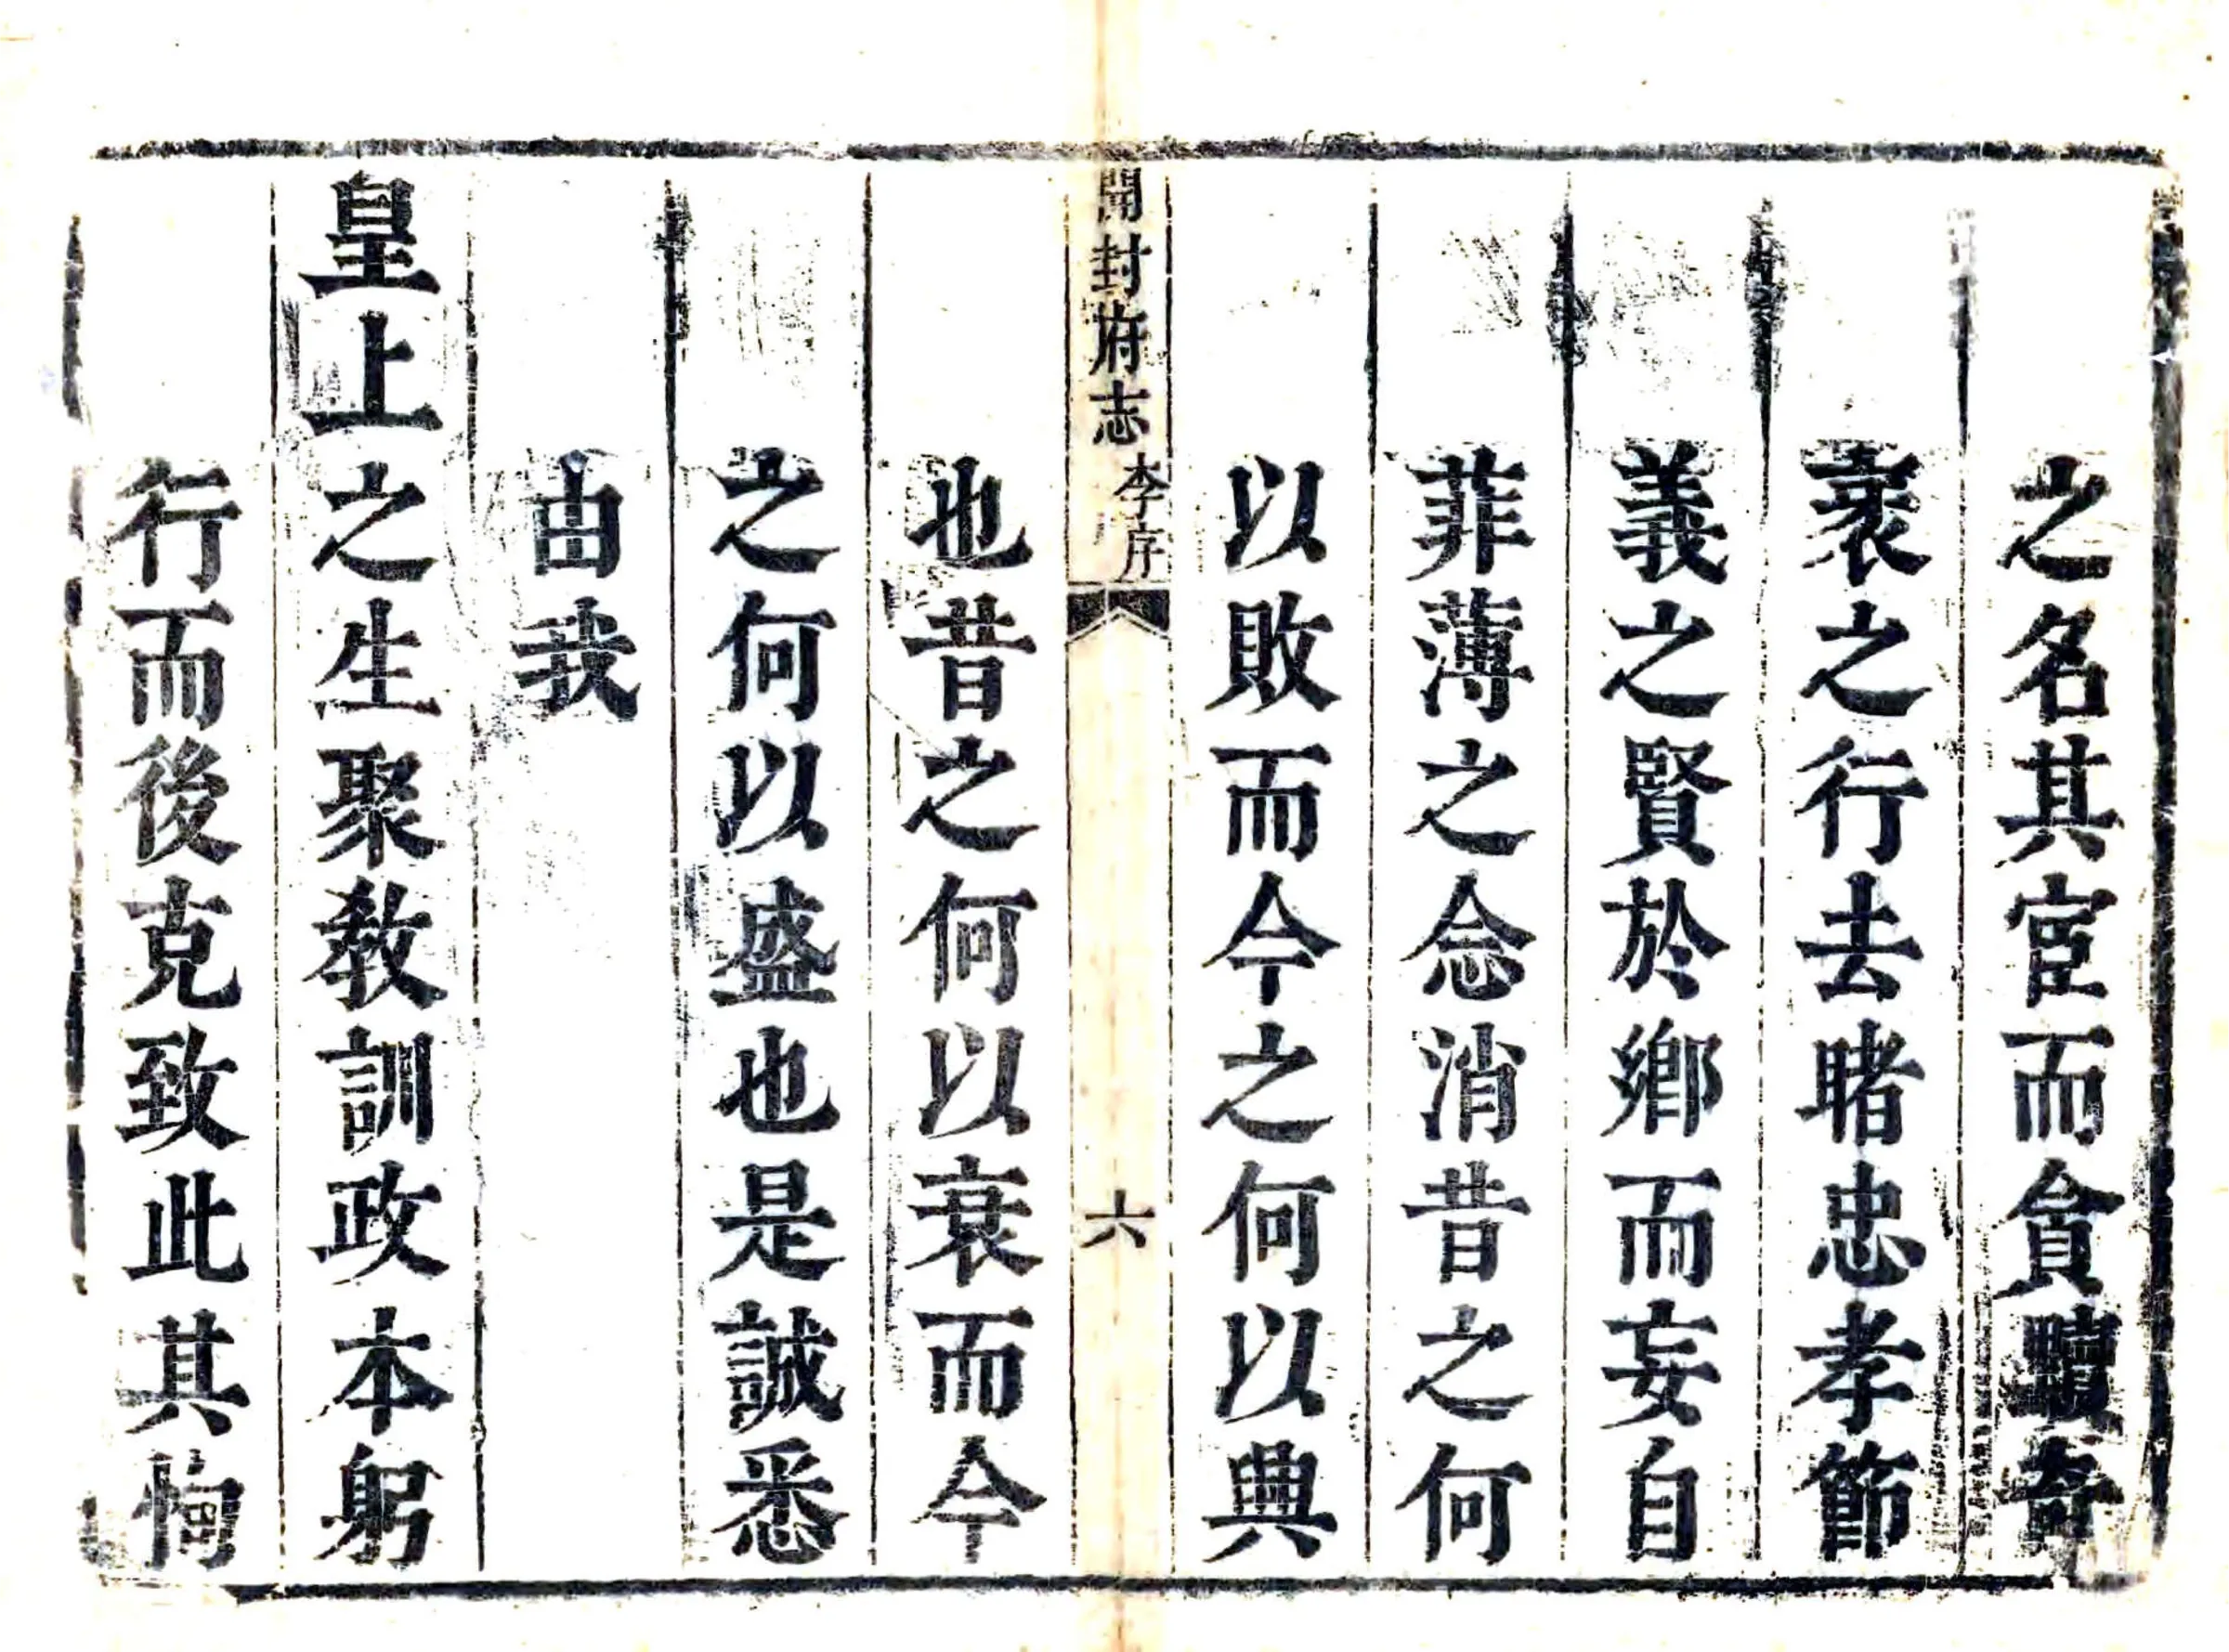 之名其宦而貪黷奇
衺之行去睹忠孝節
義之賢於鄉而妄自
菲薄之念消昔之何
以敗而今之何以典
開封府志 李序 六
也昔之何以衰而今
之何以盛也是誠悉
由我
皇上之生聚教訓政本躬
行而後克致此其